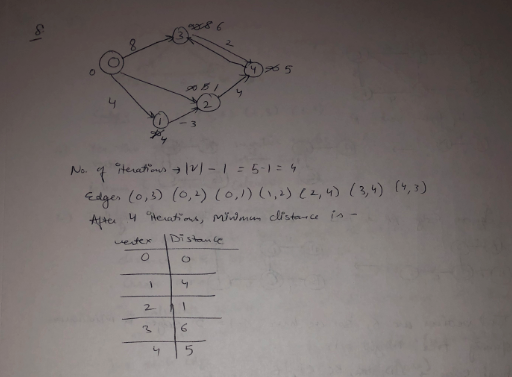 8.
8 3 ∞ 8 6
2
0
0 4 ∞ 5
∞ 5 1
4 2 4
1 -3
∞ 4
No. of iterations → |V| - 1 = 5-1 = 4
Edges (0,3) (0,2) (0,1) (1,2) (2,4) (3,4) (4,3)
After 4 iterations, minimum distance is -
vertex | Distance
0 | 0
1 | 4
2 | 1
3 | 6
4 | 5